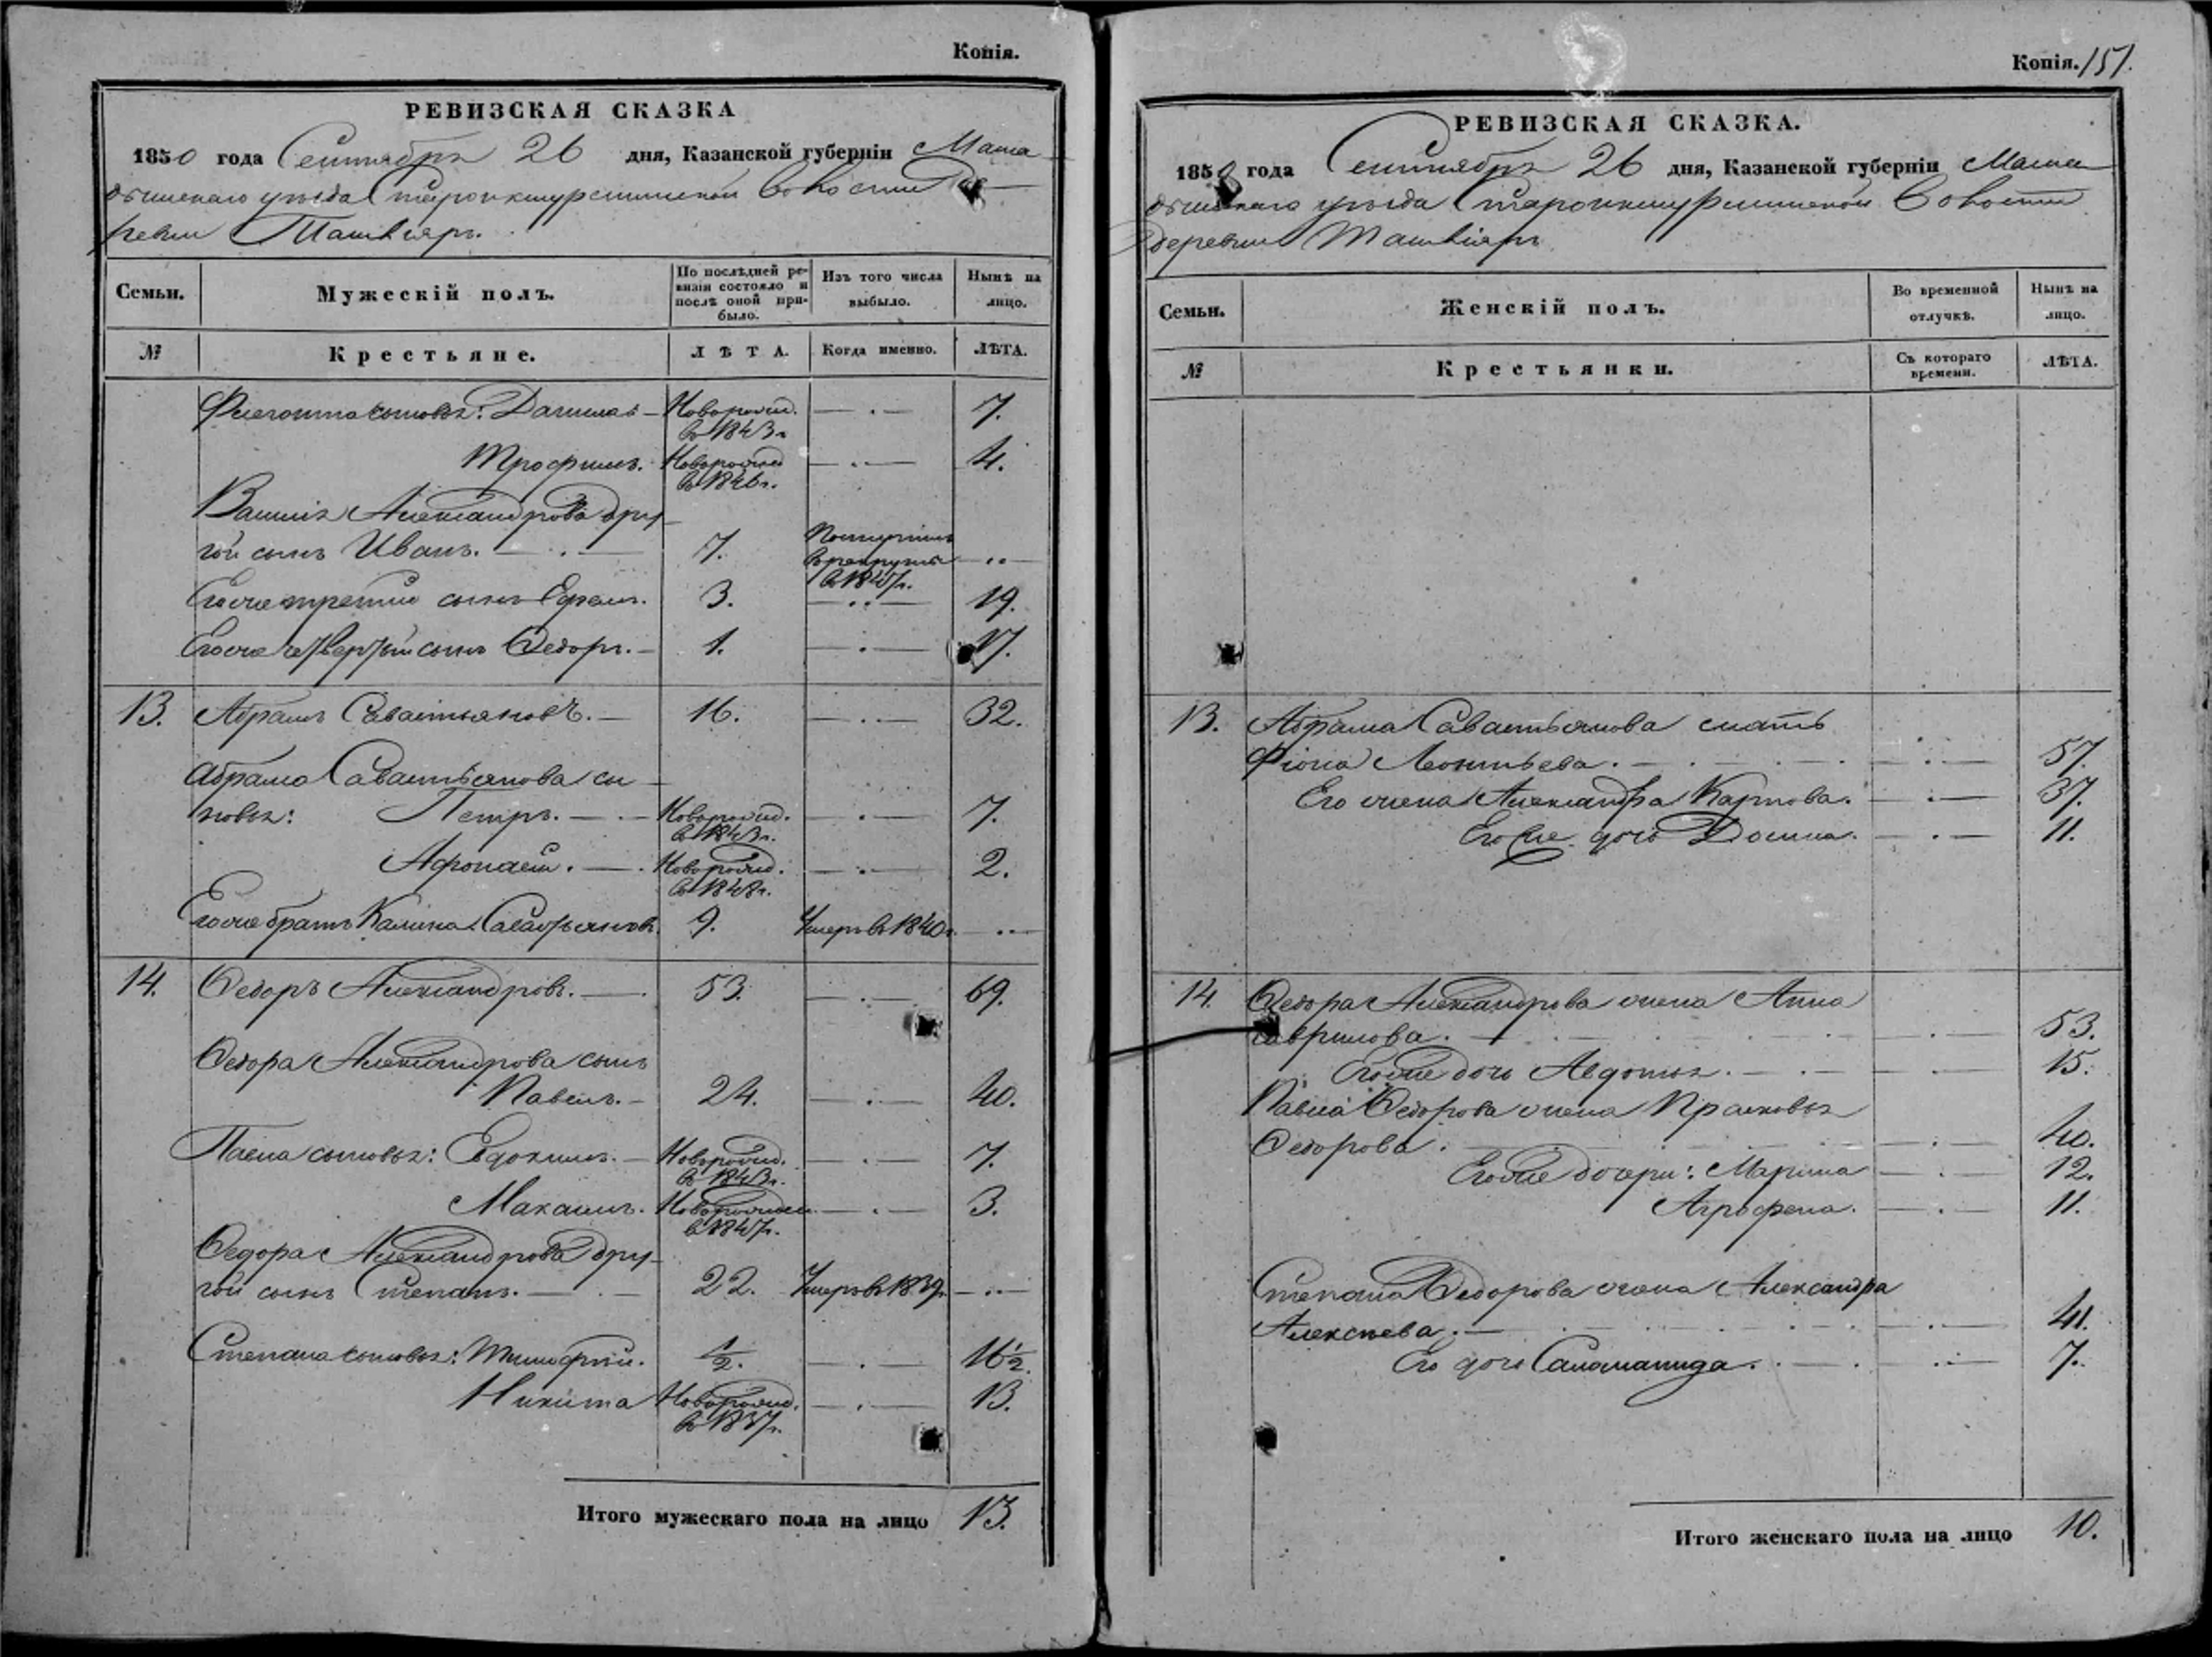 Копія.
РЕВИЗСКАЯ СКАЗКА
1850 года Сентября 26 дня, Казанской губерніи Мама-
дышскаго уезда Волости Де-
ревни Ташкіяръ.
Семьи. Мужескій полъ. По послѣдней ре- Изъ того числа Нынѣ на
визіи состояло и выбыло. лицо.
послѣ оной при-
было.
№ Крестьяне. ЛѢТА. Когда именно. ЛѢТА.
Филагонта сыновья: Данила — Новорожд. — . — 7.
в 1843г.
Трофимъ. Новорожд — . — 4.
в 1846г.
Василья Александрова дру-
гой сынъ Иванъ. — 7. Поступилъ — .. —
в рекруты
в 1847г.
Его же третій сынъ Ефремъ. 3. — .. — 19.
Его же четвертый сынъ Ѳедоръ. — 1. — . — 17.
13. Абрамъ Савастьяновъ. — 16. — . — 32.
Абрама Савастьянова сы-
новья: Петръ. — Новорожд. — . — 7.
в 1843г.
Афонасей. — Новорожд. — . — 2.
в 1848г.
Его же братъ Калина Савастьяновъ. 9. Умеръ въ 1840г. — .. —
14. Ѳедоръ Александровъ. — 53. — . — 69.
Ѳедора Александрова сынъ
Павелъ. — 24. — . — 40.
Павла сыновья: Евдокимъ. — Новорожд. — . — 7.
в 1843г.
Максимъ. Новорожден — . — 3.
в 1847г.
Ѳедора Александрова дру-
гой сынъ Степанъ. — 22. Умеръ въ 1839г. — .. —
Степана сыновья: Тимофѣй. 1/2. — . — 16 1/2.
Никита Новорожд. — . — 13.
в 1837г.
Итого мужескаго пола на лицо 13.
Копія. 151.
РЕВИЗСКАЯ СКАЗКА.
1850 года Сентября 26 дня, Казанской губерніи Мама
дышскаго уезда Волости
деревни Ташкіяръ
Семьи. Женскій полъ. Во временной Нынѣ на
отлучкѣ. лицо.
№ Крестьянки. Съ котораго ЛѢТА.
времени.
13. Абрама Савастьянова мать
Фіона Леонтьева. — . — 57.
Его жена Александра Карпова. — . — 37.
Его же дочь Домна. — . — 11.
14. Ѳедора Александрова жена Анна
Гаврилова. — . — 53.
Его же дочь Авдотья. — . — 15.
Павла Ѳедорова жена Прасковья
Ѳедорова. — . — 40.
Его же дочери: Марина — . — 12.
Агрофена. — . — 11.
Степана Ѳедорова жена Александра
Алексѣева. — . — 41.
Его дочь Саламанида. — .. — 7.
Итого женскаго пола на лицо 10.